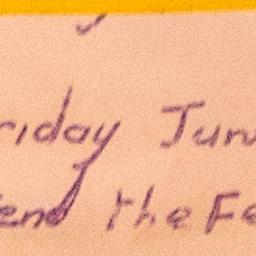 riday Jun
end the Fe